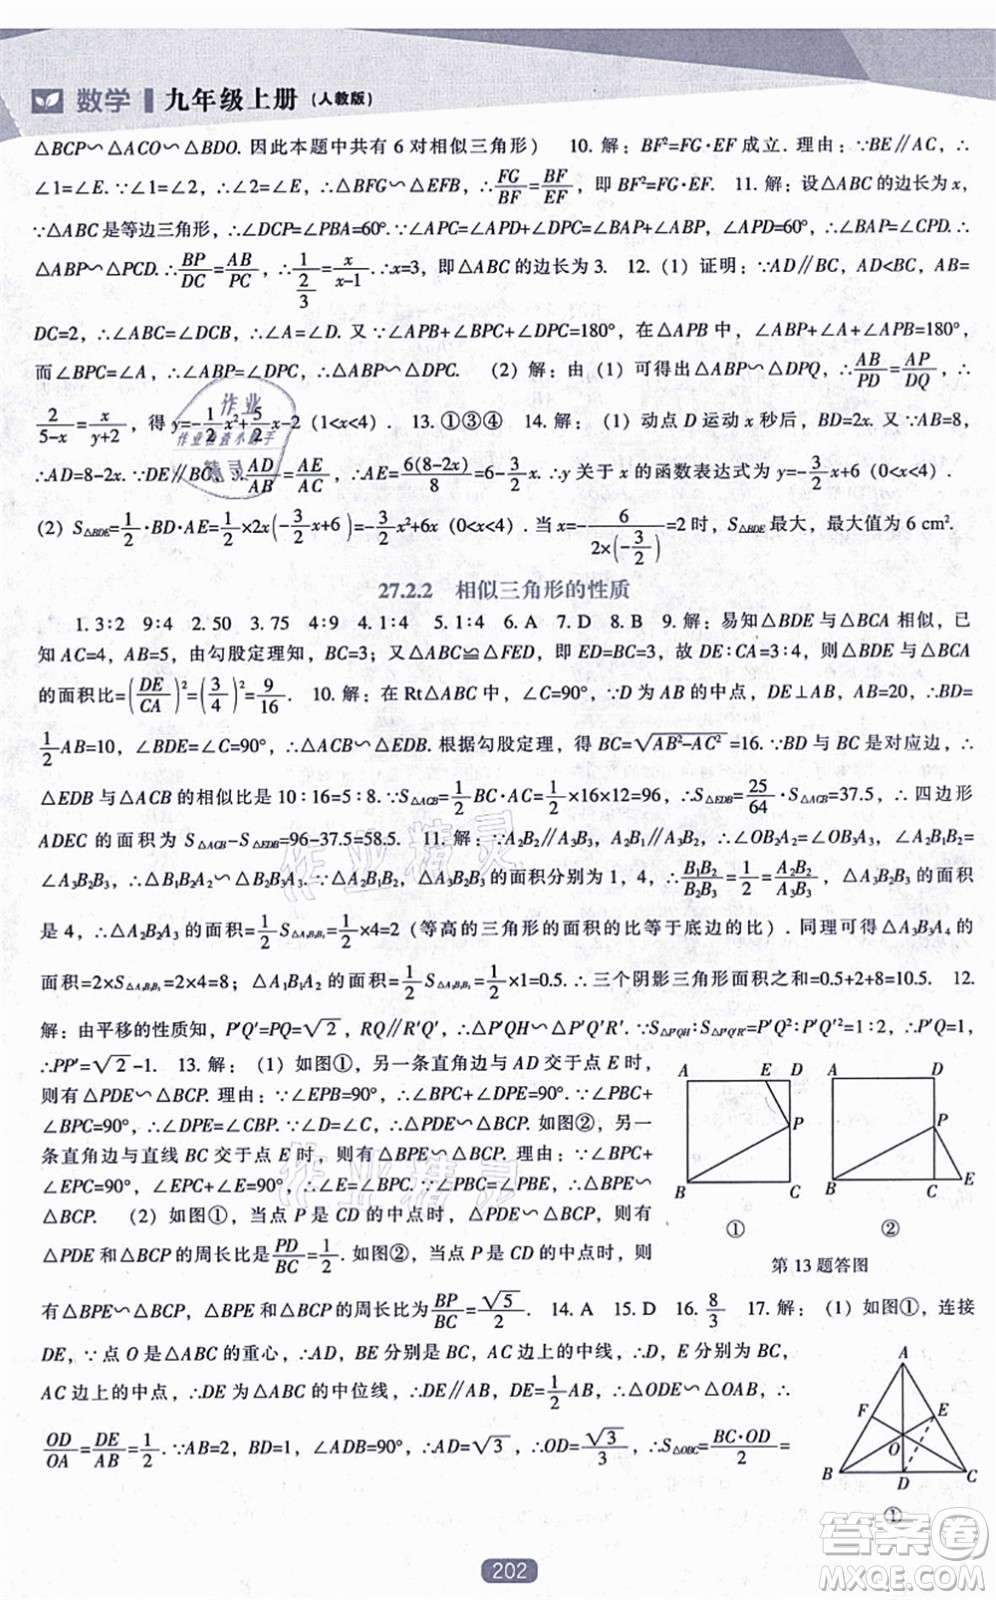 数学 九年级上册 (人教版)
△BCP∽△ACO∽△BDO. 因此本题中共有 6 对相似三角形) 10. 解：BF²=FG·EF 成立. 理由：∵AC∥BE, ∴
∠1=∠E. ∵∠1=∠2, ∴∠2=∠E, ∴△BFG∽△EFB, ∴FG/BF=BF/EF, 即 BF²=FG·EF. 11. 解：设△ABC 的边长为 x,
∵△ABC 是等边三角形, ∴∠DCP=∠PBA=60°. ∵∠APC=∠APD+∠DPC=∠ABP+∠BAP, ∠APD=60°, ∴∠BAP=∠CPD. ∴
△ABP∽△PCD. ∴BP/DC=AB/PC, ∴1/(2/3)=x/(x-1). ∴x=3, 即△ABC 的边长为 3. 12. (1) 证明：∵AD∥BC, AD<BC, AB=
DC=2, ∴∠ABC=∠DCB, ∴∠A=∠D. 又∵∠APB+∠BPC+∠DPC=180°, 在△APB 中, ∠ABP+∠A+∠APB=180°,
而∠BPC=∠A, ∴∠ABP=∠DPC, ∴△ABP∽△DPC. (2) 解：由 (1) 可得出△ABP∽△DPQ, ∴AB/PD=AP/DQ, ∴
2/(5-x)=x/(y+2), 得 y=-1/2x²+5/2x-2 (1<x<4). 13. ①③④ 14. 解：(1) 动点 D 运动 x 秒后, BD=2x. 又∵AB=8,
∴AD=8-2x. ∵DE∥BC, ∴AD/AB=AE/AC, ∴AE=6(8-2x)/8=6-3/2x. ∴y 关于 x 的函数表达式为 y=-3/2x+6 (0<x<4).
(2) S△BDE=1/2·BD·AE=1/2×2x(-3/2x+6)=-3/2x²+6x (0<x<4). 当 x=-6/(2×(-3/2))=2 时, S△BDE 最大, 最大值为 6 cm².
27.2.2 相似三角形的性质
1. 3∶2 9∶4 2. 50 3. 75 4∶9 4. 1∶4 5. 1∶4 6. A 7. D 8. B 9. 解：易知△BDE 与△BCA 相似, 已
知 AC=4, AB=5, 由勾股定理知, BC=3; 又△ABC≌△FED, 即 ED=BC=3, 故 DE∶CA=3∶4, 则△BDE 与△BCA
的面积比=(DE/CA)²=(3/4)²=9/16. 10. 解：在 Rt△ABC 中, ∠C=90°, ∵D 为 AB 的中点, DE⊥AB, AB=20, ∴BD=
1/2AB=10, ∠BDE=∠C=90°, ∴△ACB∽△EDB. 根据勾股定理, 得 BC=√(AB²-AC²)=16. ∵BD 与 BC 是对应边, ∴
△EDB 与△ACB 的相似比是 10∶16=5∶8. ∵S△ACB=1/2BC·AC=1/2×16×12=96, ∴S△EDB=25/64·S△ACB=37.5, ∴四边形
ADEC 的面积为 S△ACB-S△EDB=96-37.5=58.5. 11. 解：∵A₂B₂∥A₃B₃, A₂B₁∥A₃B₂, ∴∠OB₂A₂=∠OB₃A₃, ∠A₂B₁B₂=
∠A₃B₂B₃, ∴△B₁B₂A₂∽△B₂B₃A₃. ∵△A₂B₁B₂, △A₃B₂B₃ 的面积分别为 1, 4, ∴B₁B₂/B₂B₃=1/2=A₂B₂/A₃B₃, ∴△A₃B₂B₃ 的面积
是 4, ∴△A₂B₂A₃ 的面积=1/2S△A₃B₂B₃=1/2×4=2 (等高的三角形的面积的比等于底边的比). 同理可得△A₃B₃A₄ 的
面积=2×S△A₃B₂B₃=2×4=8; △A₁B₁A₂ 的面积=1/2S△A₂B₁B₂=1/2×1=0.5. ∴三个阴影三角形面积之和=0.5+2+8=10.5. 12.
解：由平移的性质知, P′Q′=PQ=√2, RQ∥R′Q′, ∴△P′QH∽△P′Q′R′. ∵S△P′QH∶S△P′Q′R′=P′Q²∶P′Q′²=1∶2, ∴P′Q=1,
∴PP′=√2-1. 13. 解：(1) 如图①, 另一条直角边与 AD 交于点 E 时,
则有△PDE∽△BCP. 理由：∵∠EPB=90°, ∴∠BPC+∠DPE=90°. ∵∠PBC+
∠BPC=90°, ∴∠DPE=∠CBP. ∵∠D=∠C, ∴△PDE∽△BCP. 如图②, 另一
条直角边与直线 BC 交于点 E 时, 则有△BPE∽△BCP. 理由：∵∠BPC+
∠EPC=90°, ∠EPC+∠E=90°, ∴∠BPC=∠E. ∵∠PBC=∠PBE, ∴△BPE∽
△BCP. (2) 如图①, 当点 P 是 CD 的中点时, △PDE∽△BCP, 则有
△PDE 和△BCP 的周长比是PD/BC=1/2. 如图②, 当点 P 是 CD 的中点时, 则
A E D
P
B C
①
A D
P
B C E
②
第 13 题答图
有△BPE∽△BCP, △BPE 和△BCP 的周长比为BP/BC=√5/2. 14. A 15. D 16. 8/3 17. 解：(1) 如图①, 连接
DE, ∵点 O 是△ABC 的重心, ∴AD, BE 分别是 BC, AC 边上的中线, ∴D, E 分别为 BC,
AC 边上的中点, ∴DE 为△ABC 的中位线, ∴DE∥AB, DE=1/2AB, ∴△ODE∽△OAB, ∴
OD/OA=DE/AB=1/2. ∵AB=2, BD=1, ∠ADB=90°, ∴AD=√3, ∴OD=√3/3, ∴S△OBC=BC·OD/2=
A
F E
O
B D C
①
202
作业精灵
作业精灵
作业
作业检查小助手
答案圈
MXQE.COM